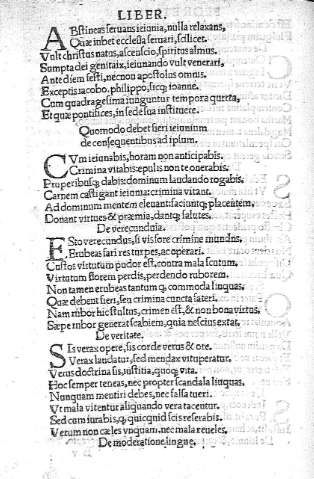 LIBER.
ABstineas seruans ieiunia, nulla relaxans,
Quæ iubet ecclesia seruari, scilicet.
Vult christus natus, ascensio, spiritus almus.
Sumpta dei genitrix, ieiunando vult venerari,
Ante diem festi, necnon apostolus omnis.
Exceptis iacobo, philippo, sicq; ioanne.
Cum quadragesima iunguntur tempora quarta,
Et quæ pontifices, in sede sua instituere.
Quomodo debet fieri ieiunium
de consequentibus ad ipsum.
CVm ieiunabis, horam non anticipabis.
Crimina vitabis: epulis non te onerabis.
Pauperibusq; dabis: dominum laudando rogabis.
Carnem castigant ieiunia: crimina vitant.
Ad dominum mentem eleuant: faciuntq; placentem,
Donant virtutes & præmia, dantq; salutes.
De verecundia.
ESto verecundus, si vis fore crimine mundus,
Erubeas fari res turpes, ac operari.
Custos virtutum pudor est, contra mala scutum,
Virtutum florem perdis, perdendo ruborem.
Non tamen erubeas tantum q; commoda linquas,
Quæ debent fieri, seu crimina cuncta fateri.
Nam rubor hic stultus, crimen est, & non bona virtus.
Sæpe rubor generat scabiem, quia nescius extat.
De veritate.
SIs verax opere, sis corde verus & ore.
Verax laudatur, sed mendax vituperatur.
Verus doctrina sis, iustitia, quoq; vita.
Hoc semper teneas, nec propter scandala linquas.
Nunquam mentiri debes, nec falsa tueri.
Vt mala vitentur aliquando vera tacentur.
Sed cum iurabis, q; quicquid scis reserabis.
Verum non cæles vnquam, nec mala reueles,
De moderatione linguæ.